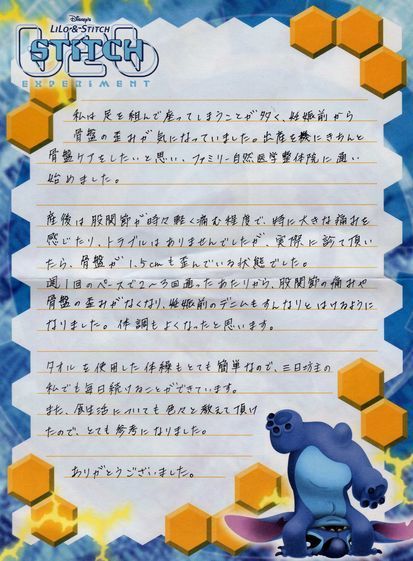 Disney's
LiLo & STiTCH
STITCH
626
EXPERIMENT
私は足を組んで座ってしまうことが多く、妊娠前から
骨盤の歪みが気になっていました。出産を機にきちんと
骨盤ケアをしたいと思い、ファミリー自然医学整体院に通い
始めました。
産後は股関節が時々軽く痛む程度で、特に大きな痛みを
感じたり、トラブルはありませんでしたが、実際に診て頂い
たら、骨盤が1.5cmも歪んでいる状態でした。
週1回のペースで2〜3回通ったあたりから、股関節の痛みや
骨盤の歪みがなくなり、妊娠前のデニムもすんなりとはけるように
なりました。体調もよくなったと思います。
タオルを使用した体操もとても簡単なので、三日坊主の
私でも毎日続けることができています。
また、食生活についても色々と教えて頂け
たので、とても参考になりました。
ありがとうございました。